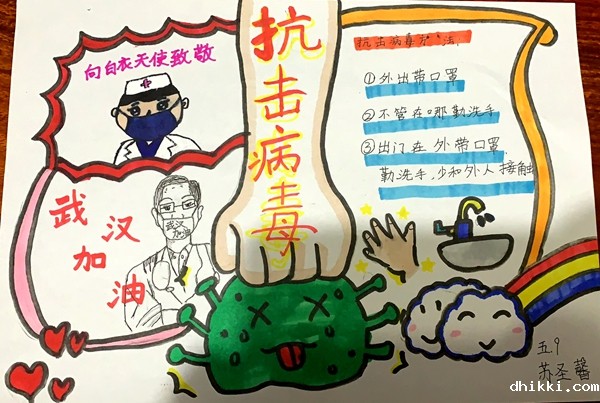 向白衣天使致敬
武汉
加油
抗击病毒
抗击病毒方法
①外出带口罩
②不管在哪勤洗手
③出门在外带口罩
勤洗手,少和外人接触
五9
苏圣馨
dhikki.com